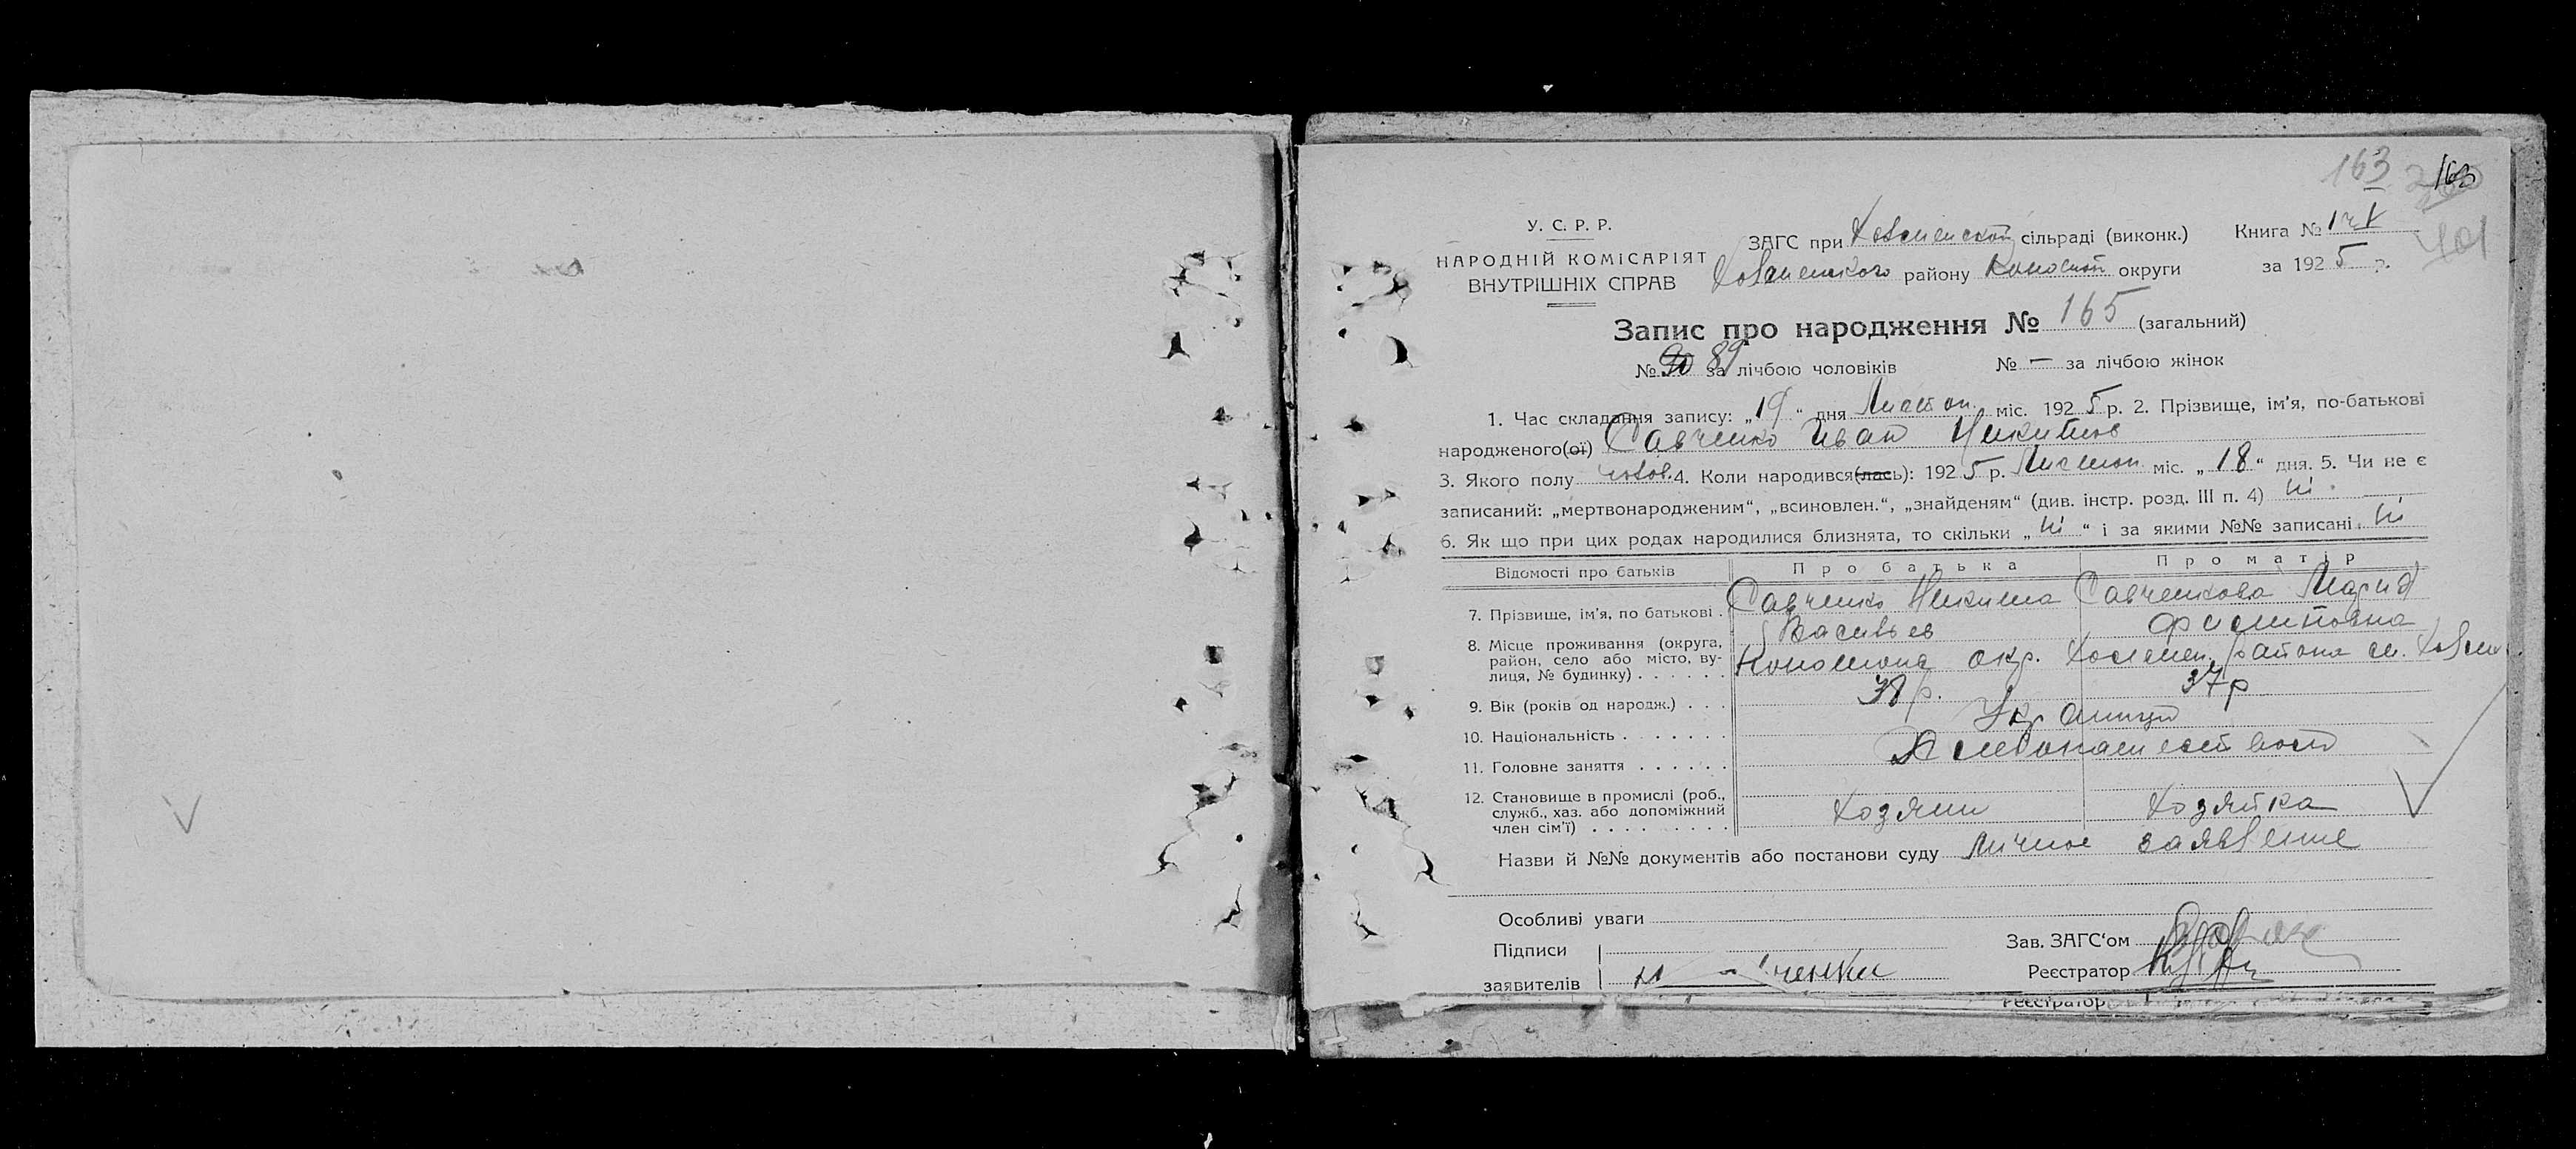 163 163
401
У. С. Р. Р.
НАРОДНІЙ КОМІСАРІЯТ
ВНУТРІШНІХ СПРАВ
ЗАГС при Ховменской сільраді (виконк.)
Ховменского району Коноской округи
Книга № 1 ч I
за 1925 р.
Запис про народження № 165 (загальний)
№ 89 за лічбою чоловіків № — за лічбою жінок
1. Час складання запису: „19“ дня Листоп. міс. 1925 р. 2. Прізвище, ім'я, по-батькові
народженого(ої) Савченко Иван Никитов
3. Якого полу чолов. 4. Коли народився(лась): 1925 р. Листоп. міс. „18“ дня. 5. Чи не є
записаний: „мертвонародженим“, „всиновлен.“, „знайденям“ (див. інстр. розд. III п. 4) ні.
6. Як що при цих родах народилися близнята, то скільки „ні“ і за якими №№ записані ні
Відомості про батьків Про батька Про матір
7. Прізвище, ім'я, по батькові . Савченко Никита Савченкова Мария
Васильев Филиповна
8. Місце проживання (округа,
район, село або місто, ву-
лиця, № будинку) . . . . . . окр. района
9. Вік (років од народж.) . . . 38 р. 37 р
10. Національність . . . . . . . Украинци
11. Головне заняття . . . . . . Хлебопашество
12. Становище в промислі (роб.,
служб., хаз. або допоміжний
член сім'ї) . . . . . . . . . Хозяин Хозяйка
Назви й №№ документів або постанови суду Личное заявление
Особливі уваги
Підписи
заявителів
Зав. ЗАГС'ом
Реєстратор
Реєстратор